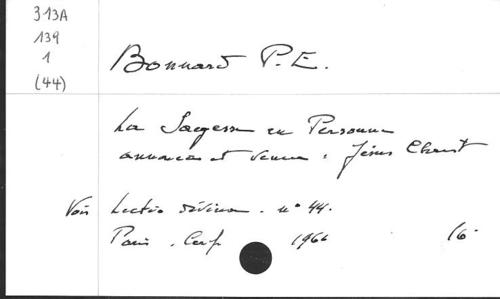 313A
139
1
(44)
Bonnard P.E.
La Sagesse en Personne
annoncée et venue : Jésus Christ
Voir Lectio divina. n° 44.
Paris. Cerf 1966 16.